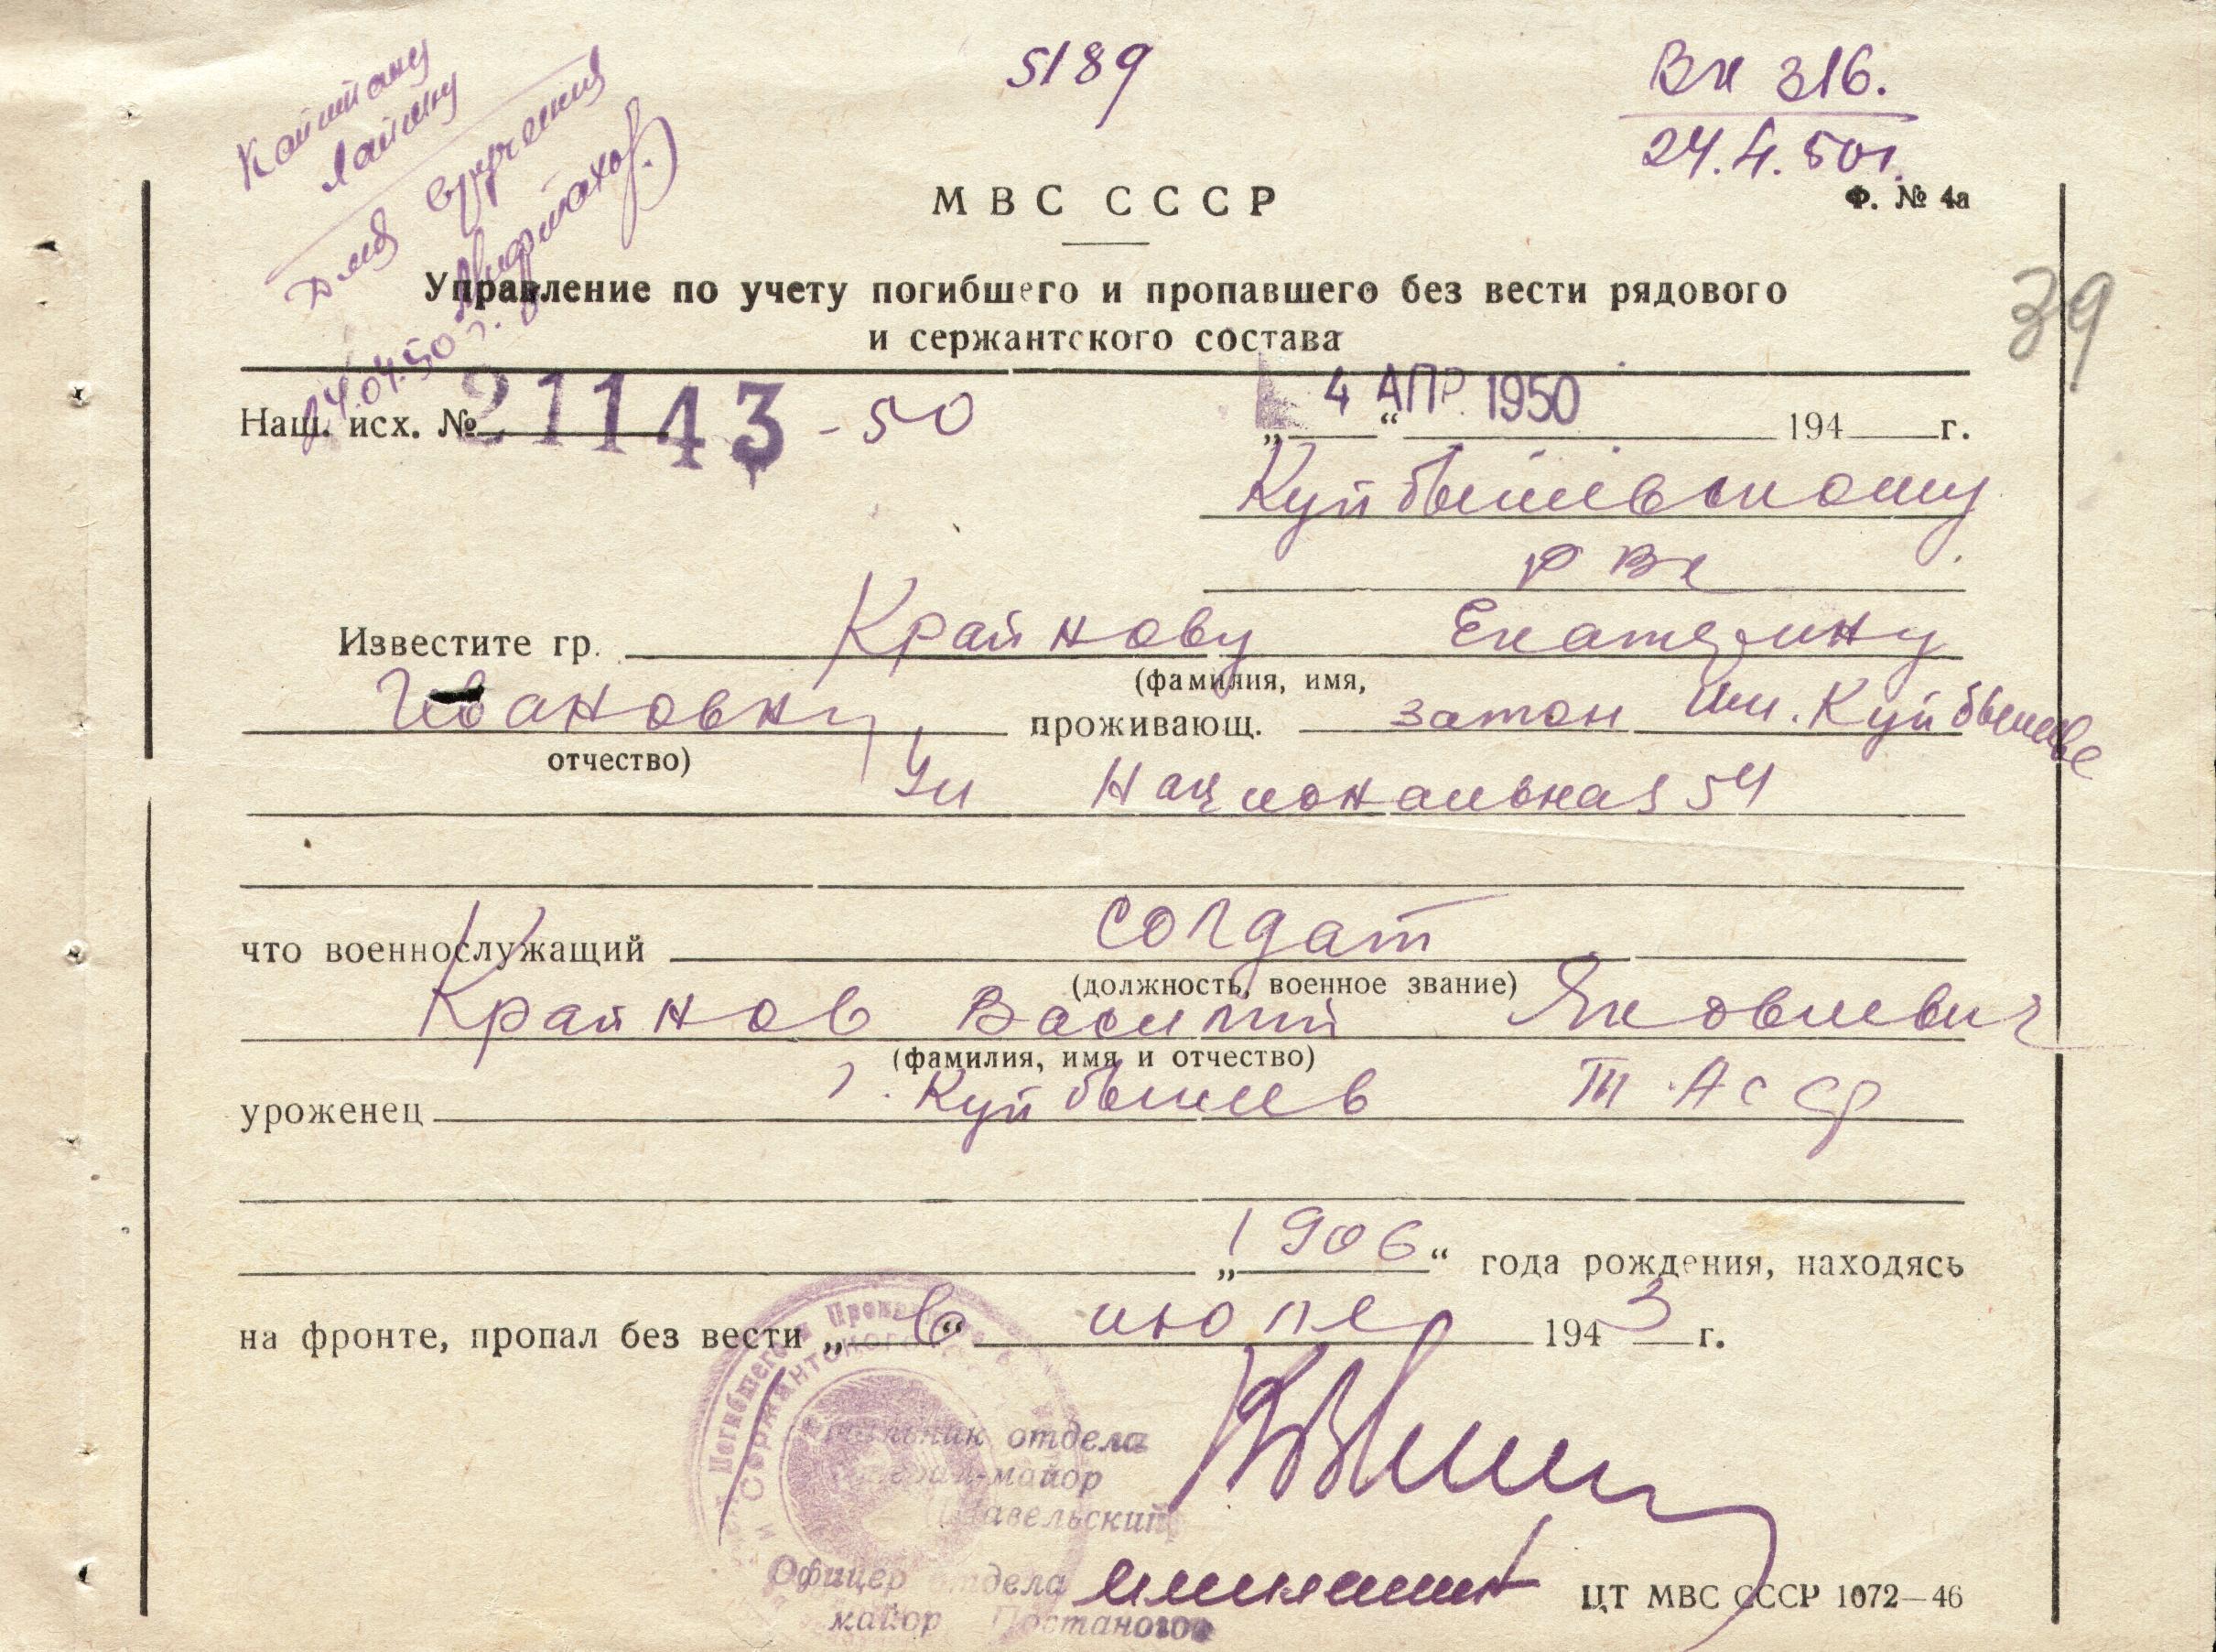 Капитану
Лаптву
для вручения
24.04.50 г.
5189
Вх 316.
24.4.50г.
МВС СССР
Ф. № 4а
39
Управление по учету погибшего и пропавшего без вести рядового
и сержантского состава
Наш. исх. № 21143 - 50 „4“ АПР. 1950 194 г.
Куйбышевскому
РВК
Известите гр. Крайнову Екатерину
(фамилия, имя,
Ивановну проживающ. затон им. Куйбышева
отчество)
Ул Национальная 54
что военнослужащий солдат
(должность, военное звание)
Крайнов Василий Яковлевич
(фамилия, имя и отчество)
уроженец г. Куйбышев ТАССР
„1906“ года рождения, находясь
на фронте, пропал без вести „в“ июле 1943 г.
Начальник отдела
генерал-майор
Офицер отдела
майор Постаногов
ЦТ МВС СССР 1072—46